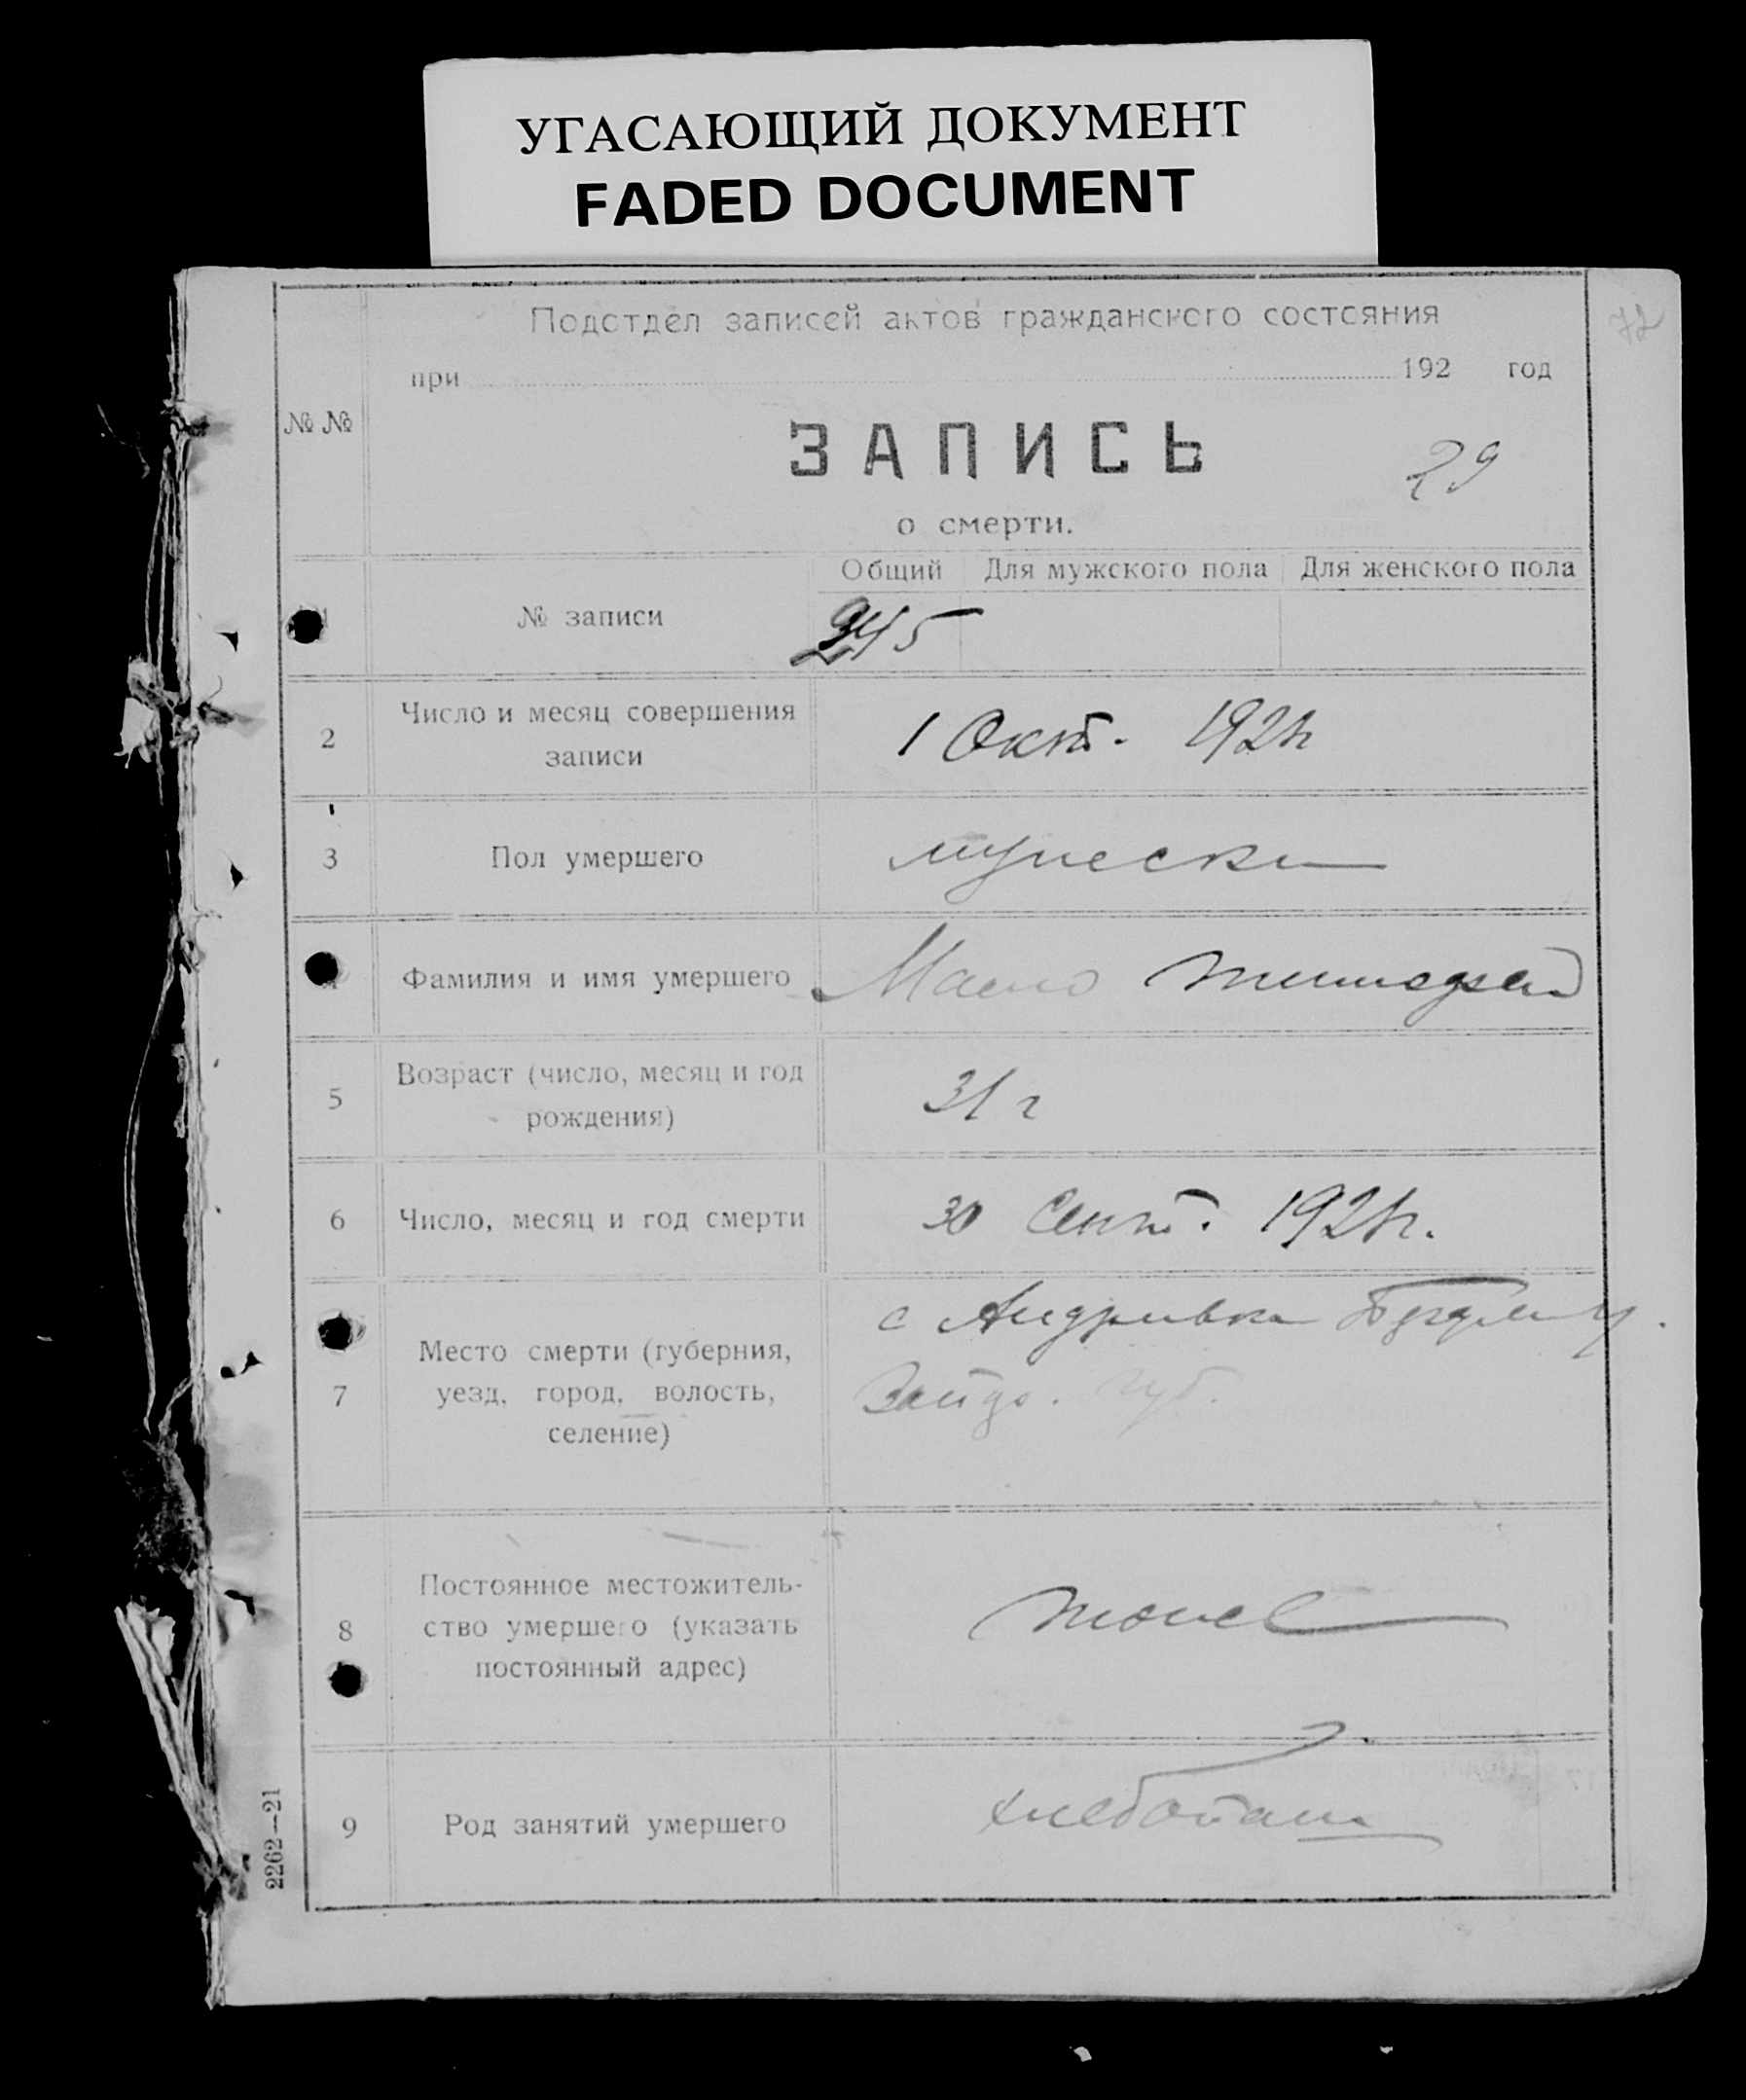 УГАСАЮЩИЙ ДОКУМЕНТ
FADED DOCUMENT
Подотдел записей актов гражданского состояния
72
при 192 год
№ №
ЗАПИСЬ
29
о смерти.
Общий Для мужского пола Для женского пола
1 № записи 245
2 Число и месяц совершения
записи
1 Окт. 1921г
3 Пол умершего
4 Фамилия и имя умершего Тимофей
5 Возраст (число, месяц и год
рождения)
31 г
6 Число, месяц и год смерти 30 Сент. 1921г.
с Андривка у.
7 Место смерти (губерния,
уезд, город, волость,
селение)
губ.
8 Постоянное местожитель-
ство умершего (указать
постоянный адрес)
9 Род занятий умершего
2262—21